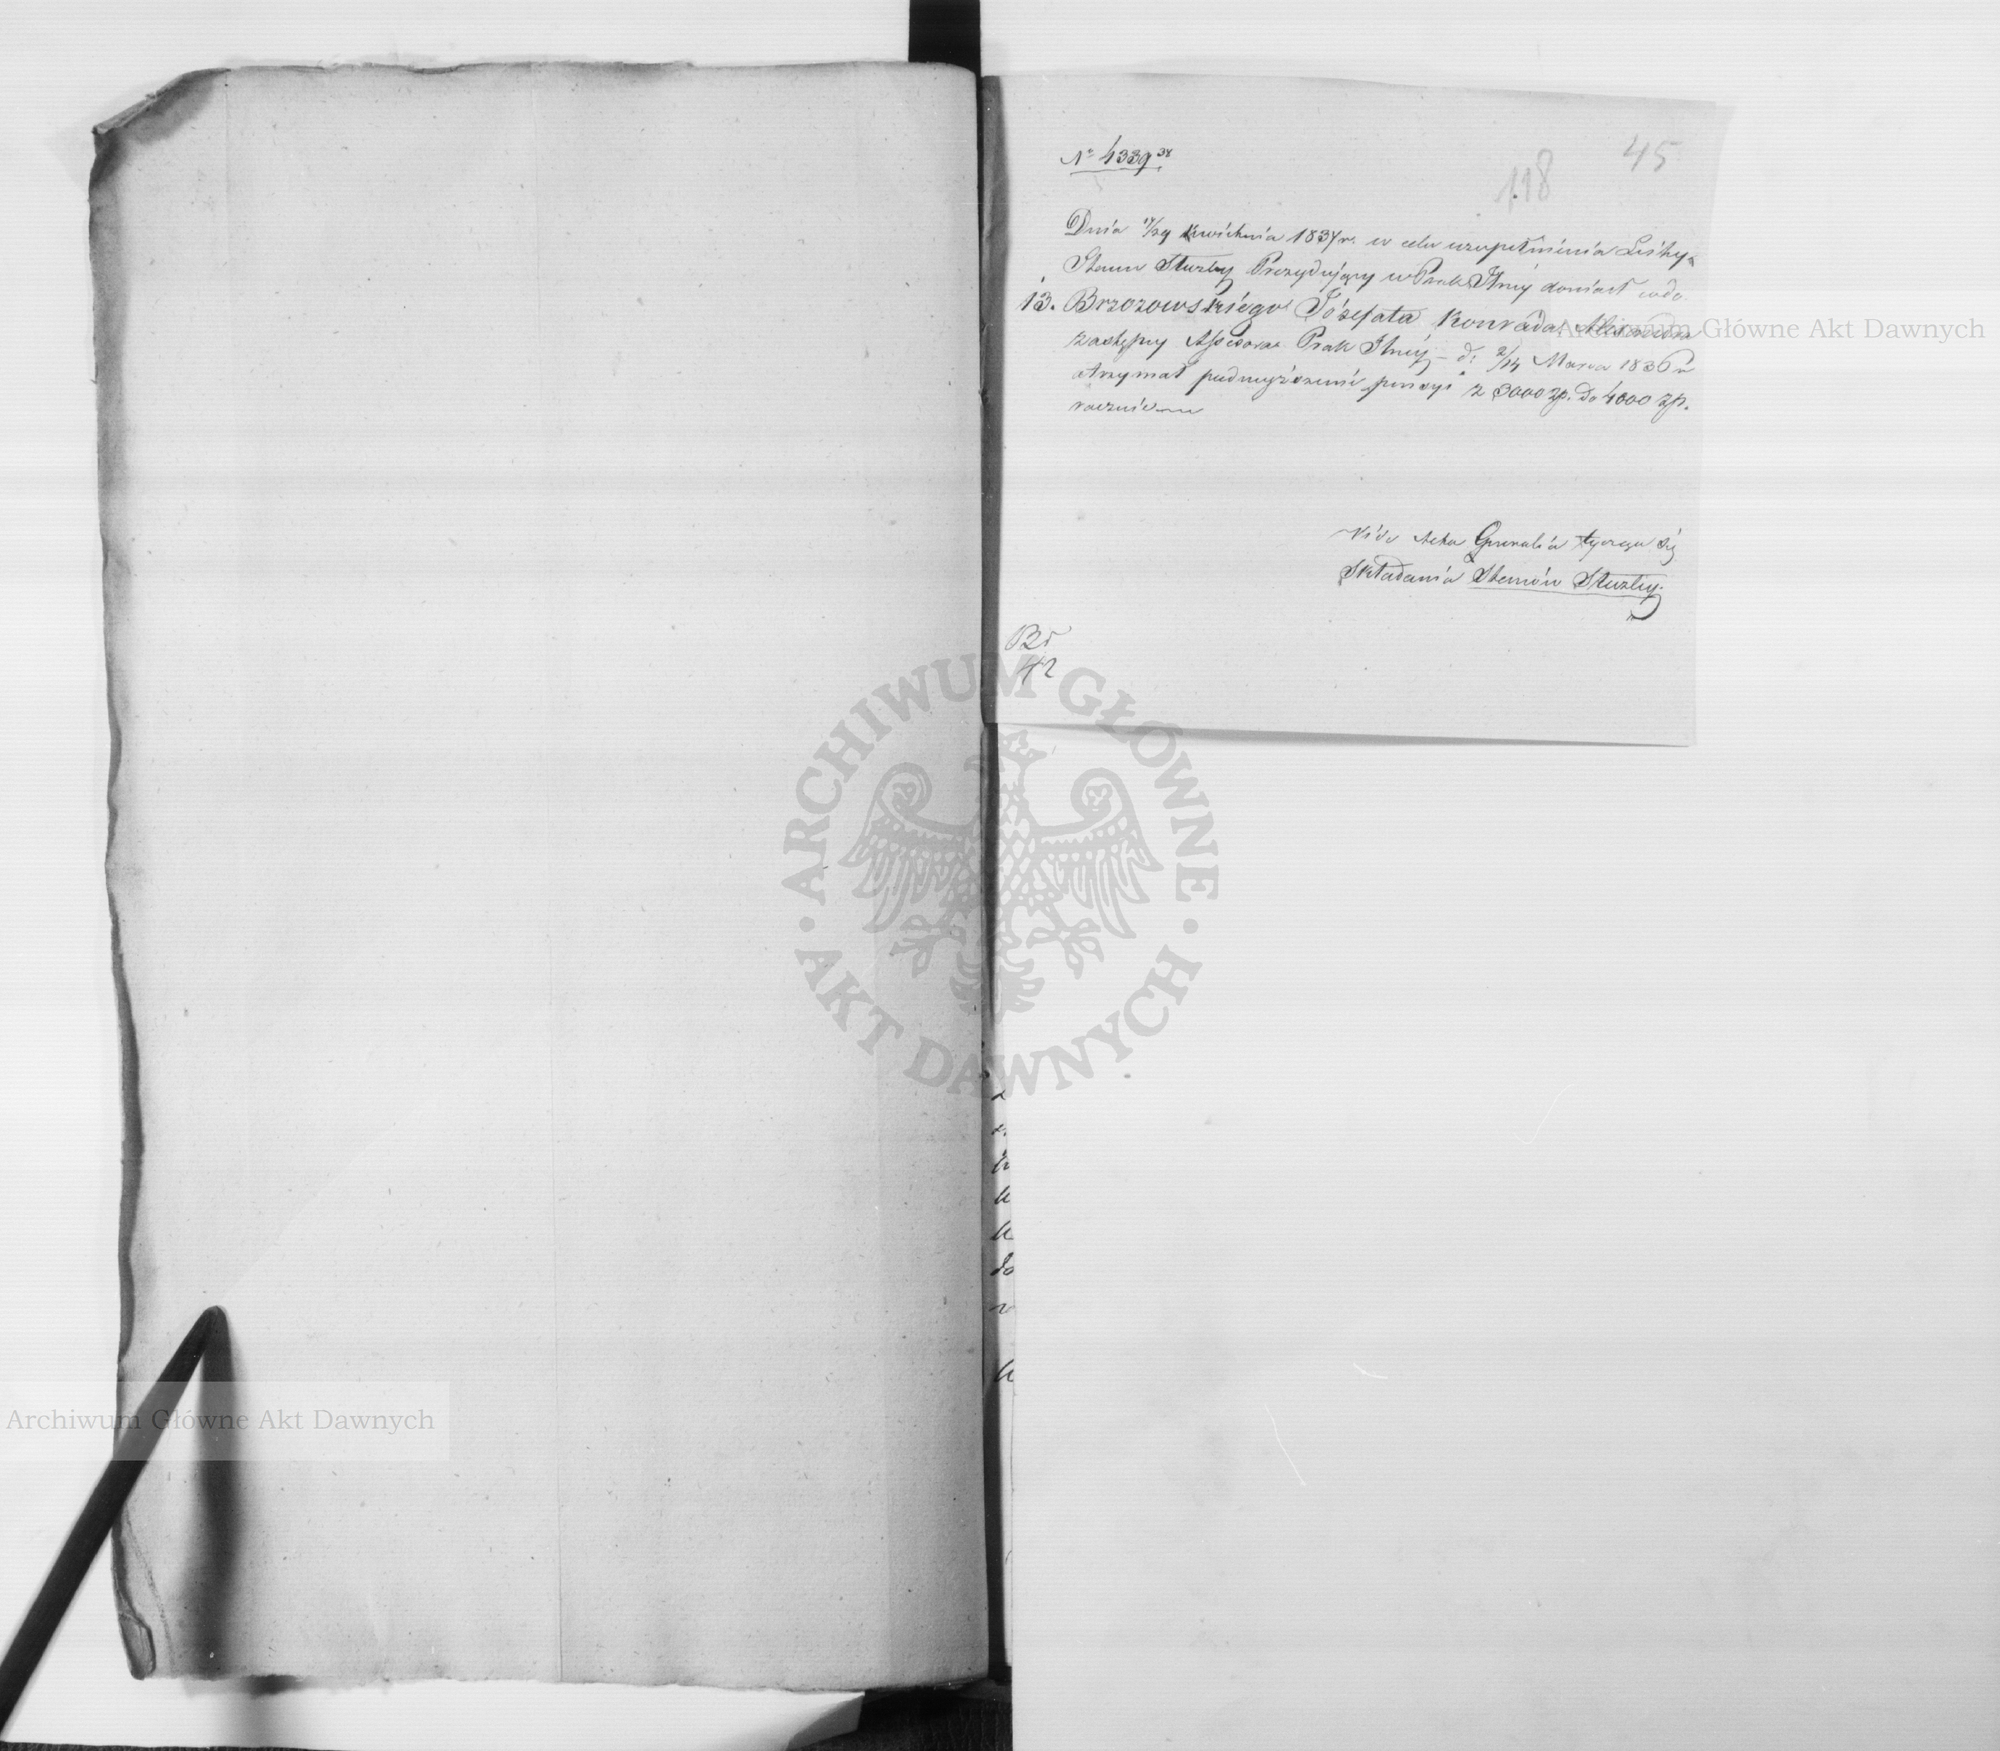 45
118
Nr 4339 38
Dnia 17/29 Kwietnia 1837 r. w celu uzupełnienia Listy
Stanu Służby Prezydujący w Prok. doniósł co do
13. Brzozowskiego Józefata Konrada Alexandra
zastępcy Assesora Prok – d: 2/14 Marca 1836 r
otrzymał podwyższenie pensyi z 3000 zp. do 4000 zp.
rocznie
Vide Acta Generalia tyczące się
Składania Stanów Służby.
ARCHIWUM GŁÓWNE
AKT DAWNYCH
do
Archiwum Główne Akt Dawnych
Archiwum Główne Akt Dawnych